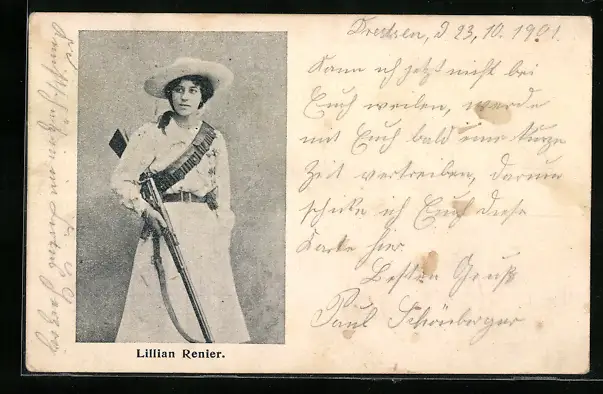 Dresden, d 23, 10. 1901.
Kann ich jetzt nicht bei
Euch weilen, werde
mit Euch bald eine kurze
Zeit vertreiben, darum
schicke ich Euch diese
Karte hier.
Besten Gruß
Paul Schönberger
Lillian Renier.